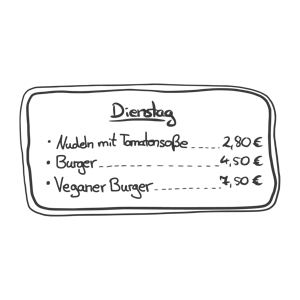 Dienstag
· Nudeln mit Tomatensoße ----- 2,80 €
· Burger ---------------- 4,50 €
· Veganer Burger ---------- 7,50 €